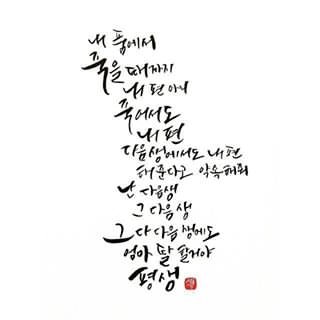 내 품에서
죽을 때까지
내 편 아니
죽어서도
내 편
다음생에서도 내 편
해준다고 약속해줘
난 다음생
그 다음 생
그 다 다음 생에도
엄마 딸 할거야
평생